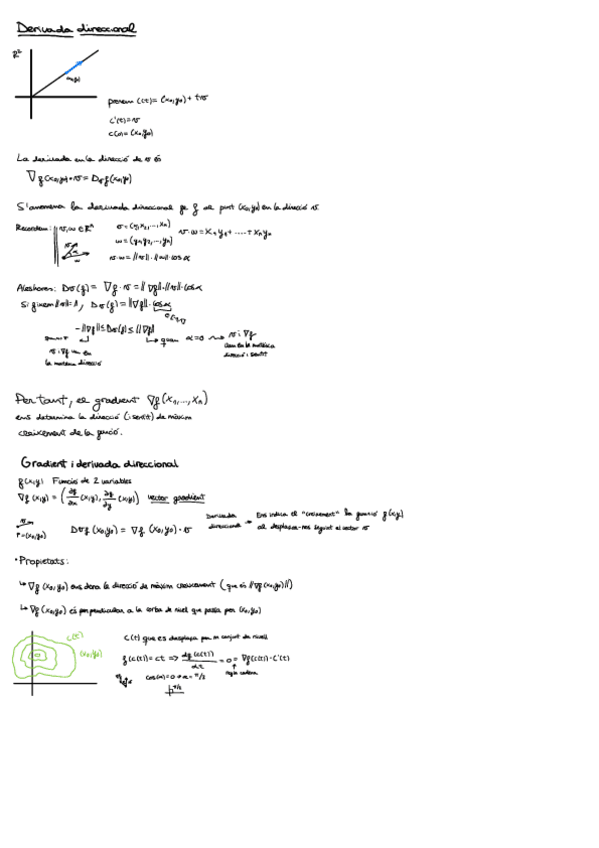 Derivada direccional
R²
(x0,y0)
prenem c(t)= (x0,y0) + tv
c'(t)=v
c(0)=(x0,y0)
La derivada en la direcció de v és
∇f(x0,y0)·v = Dvf(x0,y0)
S'anomena la derivada direccional de f al punt (x0,y0) en la direcció v.
Recordem: v,w ∈ Rⁿ
v=(x1,x2,...,xn)
w=(y1,y2,...,yn)
v·w=x1y1+....+xnyn
v·w=||v||·||w||·cosα
Aleshores: Dv(f) = ∇f·v = ||∇f||·||v||·cosα
Si fixem ||v||=1, Dv(f)=||∇f||·cosα
-||∇f|| ≤ Dv(f) ≤ ||∇f||
quan α=0 ⇝ v i ∇f
v i ∇f van en
la mateixa direcció
direcció i sentit
Per tant, el gradient ∇f(x1,...,xn)
ens determina la direcció (i sentit) de màxim
creixement de la funció.
Gradient i derivada direccional
f(x,y) Funció de 2 variables
∇f(x,y) = (∂f/∂x (x,y), ∂f/∂y (x,y)) vector gradient
P=(x0,y0)
Dvf(x0,y0) = ∇f(x0,y0)·v
Derivada direccional → Ens indica el "creixement" la funció f(x,y)
al desplaçar-nos seguint el vector v
• Propietats:
↳ ∇f(x0,y0) ens dona la direcció de màxim creixement (que és ||∇f(x0,y0)||)
↳ ∇f(x0,y0) és perpendicular a la corba de nivell que passa per (x0,y0)
c(t)
(x0,y0)
c(t) que es desplaça per un conjunt de nivell
f(c(t))=ct => df(c(t))/dt = 0 = ∇f(c(t))·c'(t)
regla cadena
cos(α)=0 → α=π/2
π/2